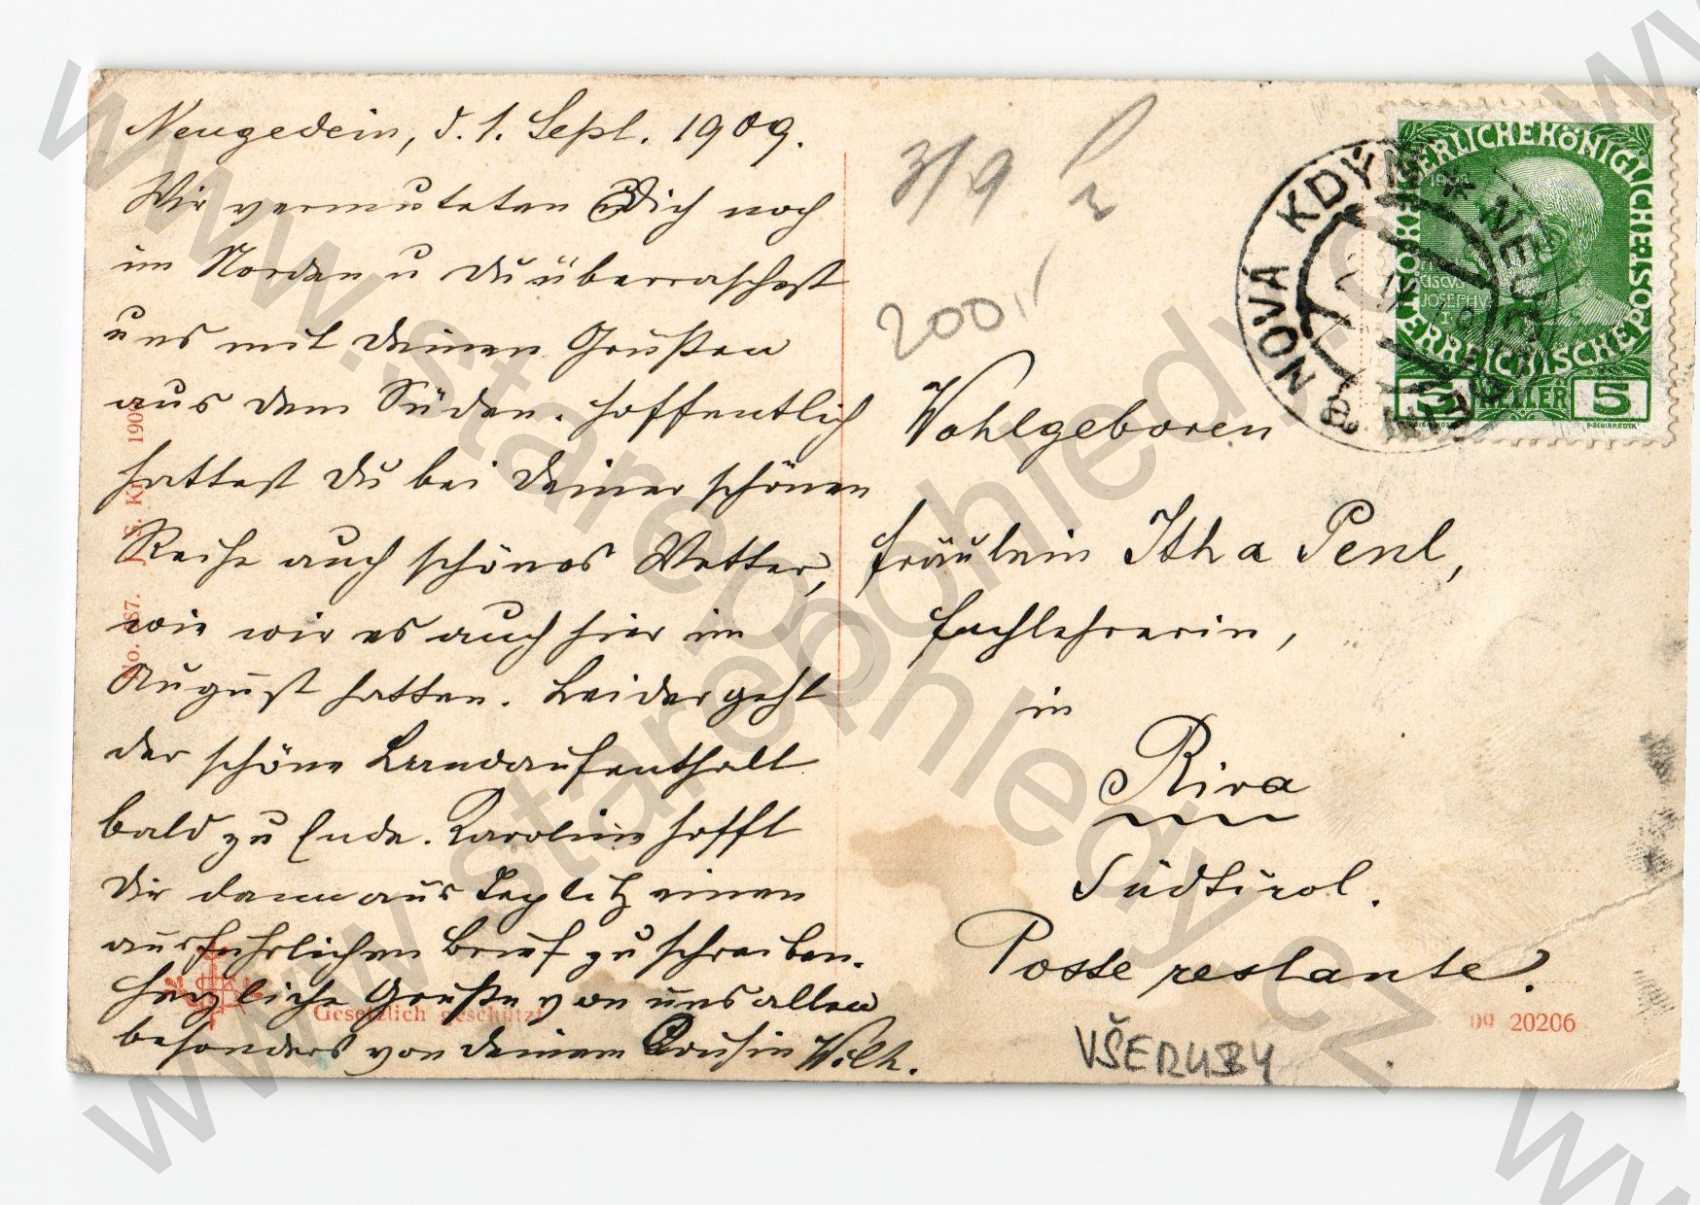 Neugedein, d. 1. Sept. 1909.
Wir vermuteten Dich noch
im Norden u Du überraschest
uns mit Deinen Grüßen
aus dem Süden. Hoffentlich
hattest Du bei Deiner schönen
Reise auch schönes Wetter,
wie wir es auch hier im
August hatten. Leider geht
der schöne Landaufenthalt
bald zu Ende. Karoline hofft
Dir dann aus Teplitz einen
ausführlichen Brief zu schreiben.
Herzliche Grüße von uns allen
besonders von Deinem Cousin Wilh.
3/9
200,-
Wohlgeboren
Fräulein Itha Penl,
Fachlehrerin,
in
Riva
Südtirol.
Poste restante.
VŠERUBY
09 20206
Gesetzlich geschützt
NOVÁ KDYNĚ * NEUGEDEIN
KAISERLICHEKÖNIGLICHE
ÖSTERREICHISCHEPOST
1908
JOSEPHVS
I
5 HELLER 5
www.starepohledy.cz
www.starepohledy.cz